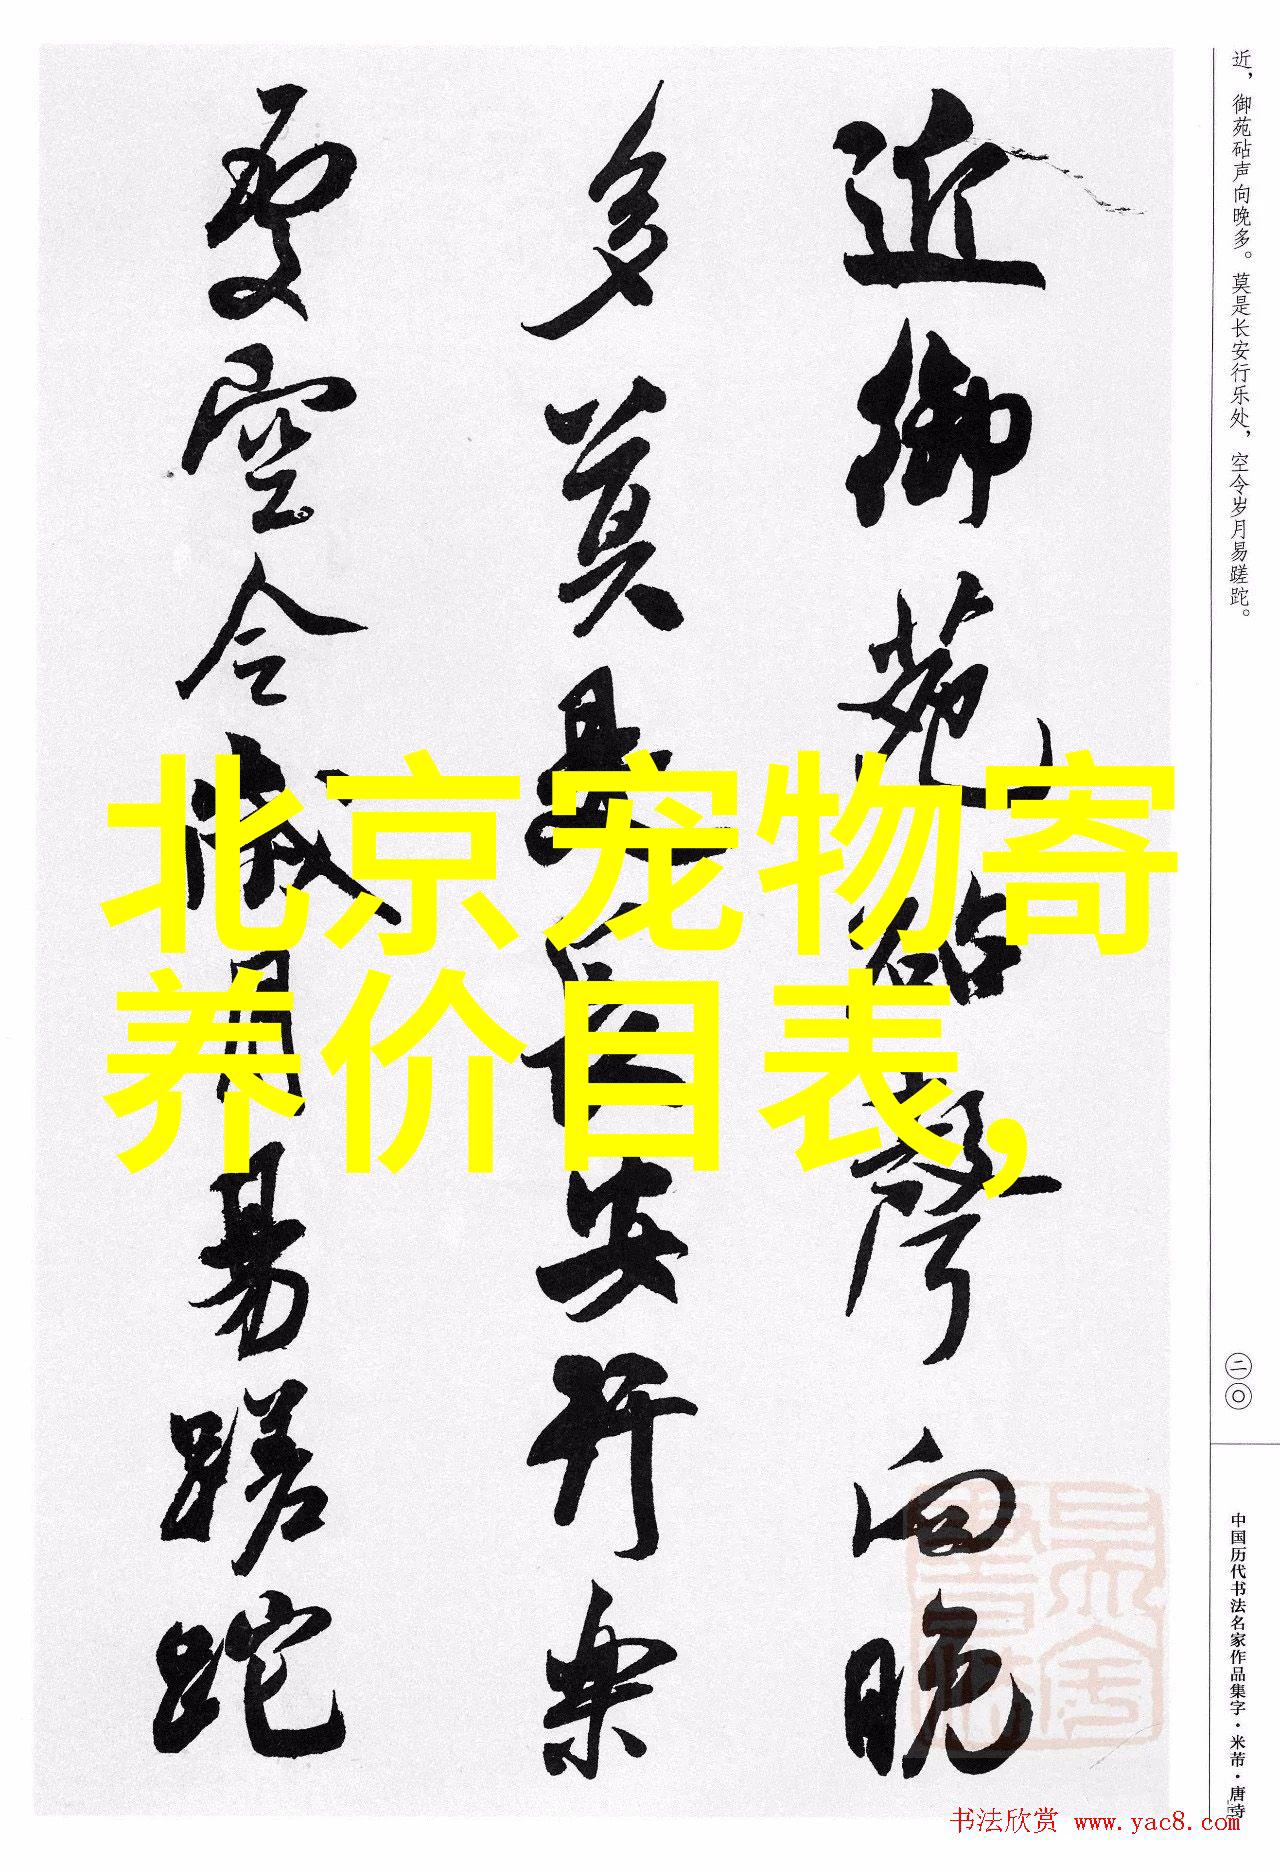 近，御苑砧声向晚多。莫是长安行乐处，空令岁月易蹉跎。
近御苑砧聲向晚
多莫是長安行樂
處空令歲月易蹉跎
北京宠物寄
养价目表，
二〇
中国历代书法名家作品集字·米芾·唐诗
书法欣赏 www.yac8.com